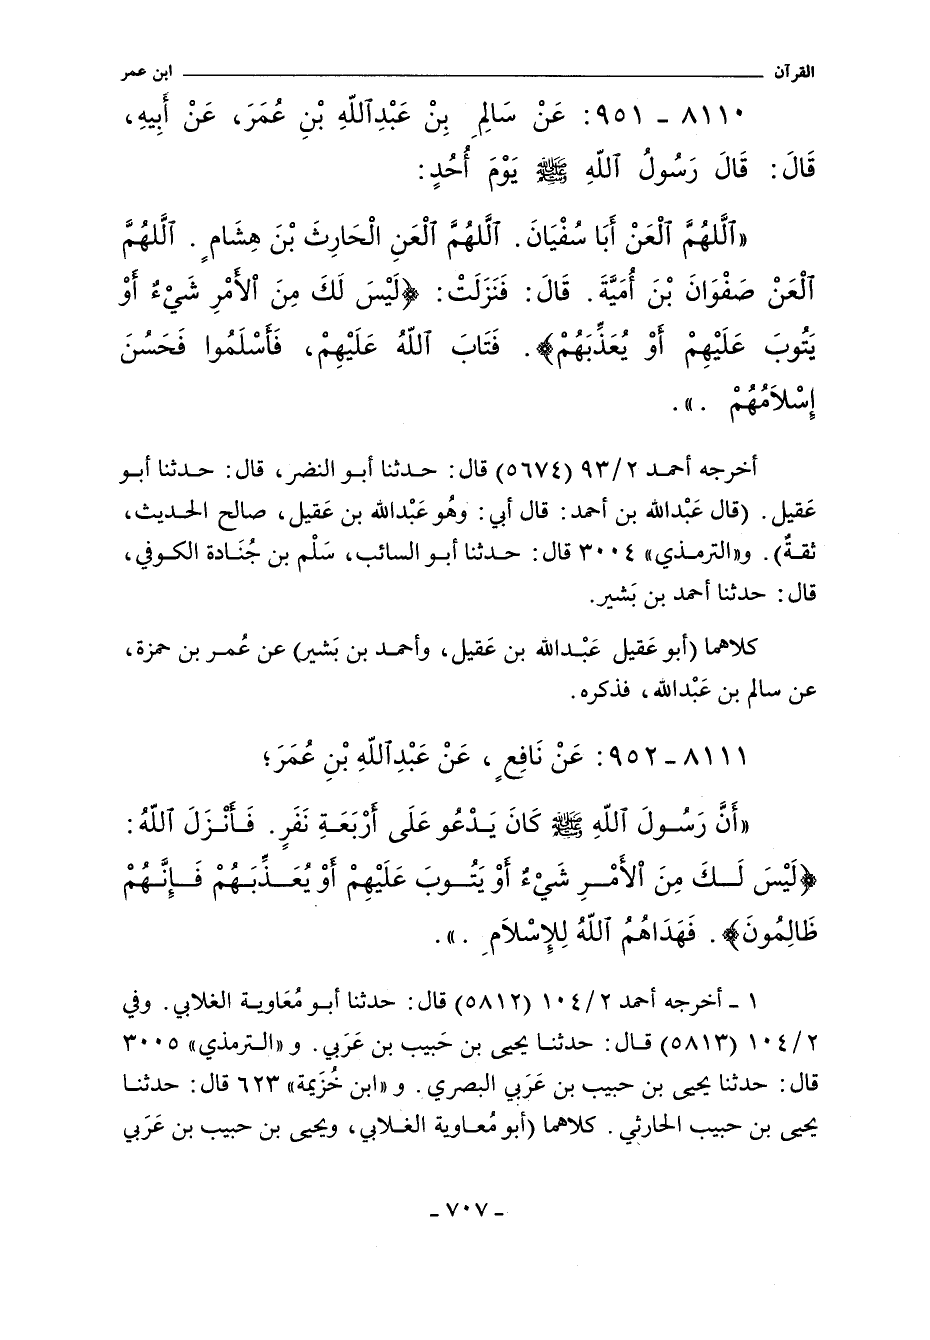 القرآن ــــــــــــــــــــ ابن عمر
٨١١٠ ـ ٩٥١: عَنْ سَالِمِ بْنِ عَبْدِاللّهِ بْنِ عُمَرَ، عَنْ أَبِيهِ،
قَالَ: قَالَ رَسُولُ اللّهِ ﷺ يَوْمَ أُحُدٍ:
«اَللَّهُمَّ الْعَنْ أَبَا سُفْيَانَ. اَللَّهُمَّ الْعَنِ الْحَارِثَ بْنَ هِشَامٍ. اَللَّهُمَّ
الْعَنْ صَفْوَانَ بْنَ أُمَيَّةَ. قَالَ: فَنَزَلَتْ: ﴿لَيْسَ لَكَ مِنَ الأَمْرِ شَيْءٌ أَوْ
يَتُوبَ عَلَيْهِمْ أَوْ يُعَذِّبَهُمْ﴾. فَتَابَ اللّهُ عَلَيْهِمْ، فَأَسْلَمُوا فَحَسُنَ
إِسْلاَمُهُمْ .».
أخرجه أحمد ٩٣/٢ (٥٦٧٤) قال: حدثنا أبو النضر، قال: حدثنا أبو
عَقيل. (قال عَبْدالله بن أحمد: قال أبي: وهُو عَبْدالله بن عَقيل، صالح الحديث،
ثقةٌ). و«الترمذي» ٣٠٠٤ قال: حدثنا أبو السائب، سَلْم بن جُنَادة الكوفي،
قال: حدثنا أحمد بن بَشير.
كلاهما (أبو عَقيل عَبْدالله بن عَقيل، وأحمد بن بَشير) عن عُمر بن حمزة،
عن سالم بن عَبْدالله، فذكره.
٨١١١ ـ ٩٥٢: عَنْ نَافِعٍ، عَنْ عَبْدِاللّهِ بْنِ عُمَرَ؛
«أَنَّ رَسُولَ اللّهِ ﷺ كَانَ يَدْعُو عَلَى أَرْبَعَةِ نَفَرٍ. فَأَنْزَلَ اللّهُ:
﴿لَيْسَ لَكَ مِنَ الأَمْرِ شَيْءٌ أَوْ يَتُوبَ عَلَيْهِمْ أَوْ يُعَذِّبَهُمْ فَإِنَّهُمْ
ظَالِمُونَ﴾. فَهَدَاهُمُ اللّهُ لِلإِسْلاَمِ .».
١ ـ أخرجه أحمد ١٠٤/٢ (٥٨١٢) قال: حدثنا أبو مُعَاوية الغلابي. وفي
١٠٤/٢ (٥٨١٣) قال: حدثنا يحيى بن حَبيب بن عَرَبي. و«الترمذي» ٣٠٠٥
قال: حدثنا يحيى بن حبيب بن عَرَبي البصري. و«ابن خُزَيمة» ٦٢٣ قال: حدثنا
يحيى بن حبيب الحارثي. كلاهما (أبو مُعاوية الغلابي، ويحيى بن حبيب بن عَرَبي
ـ ٧٠٧ ـ